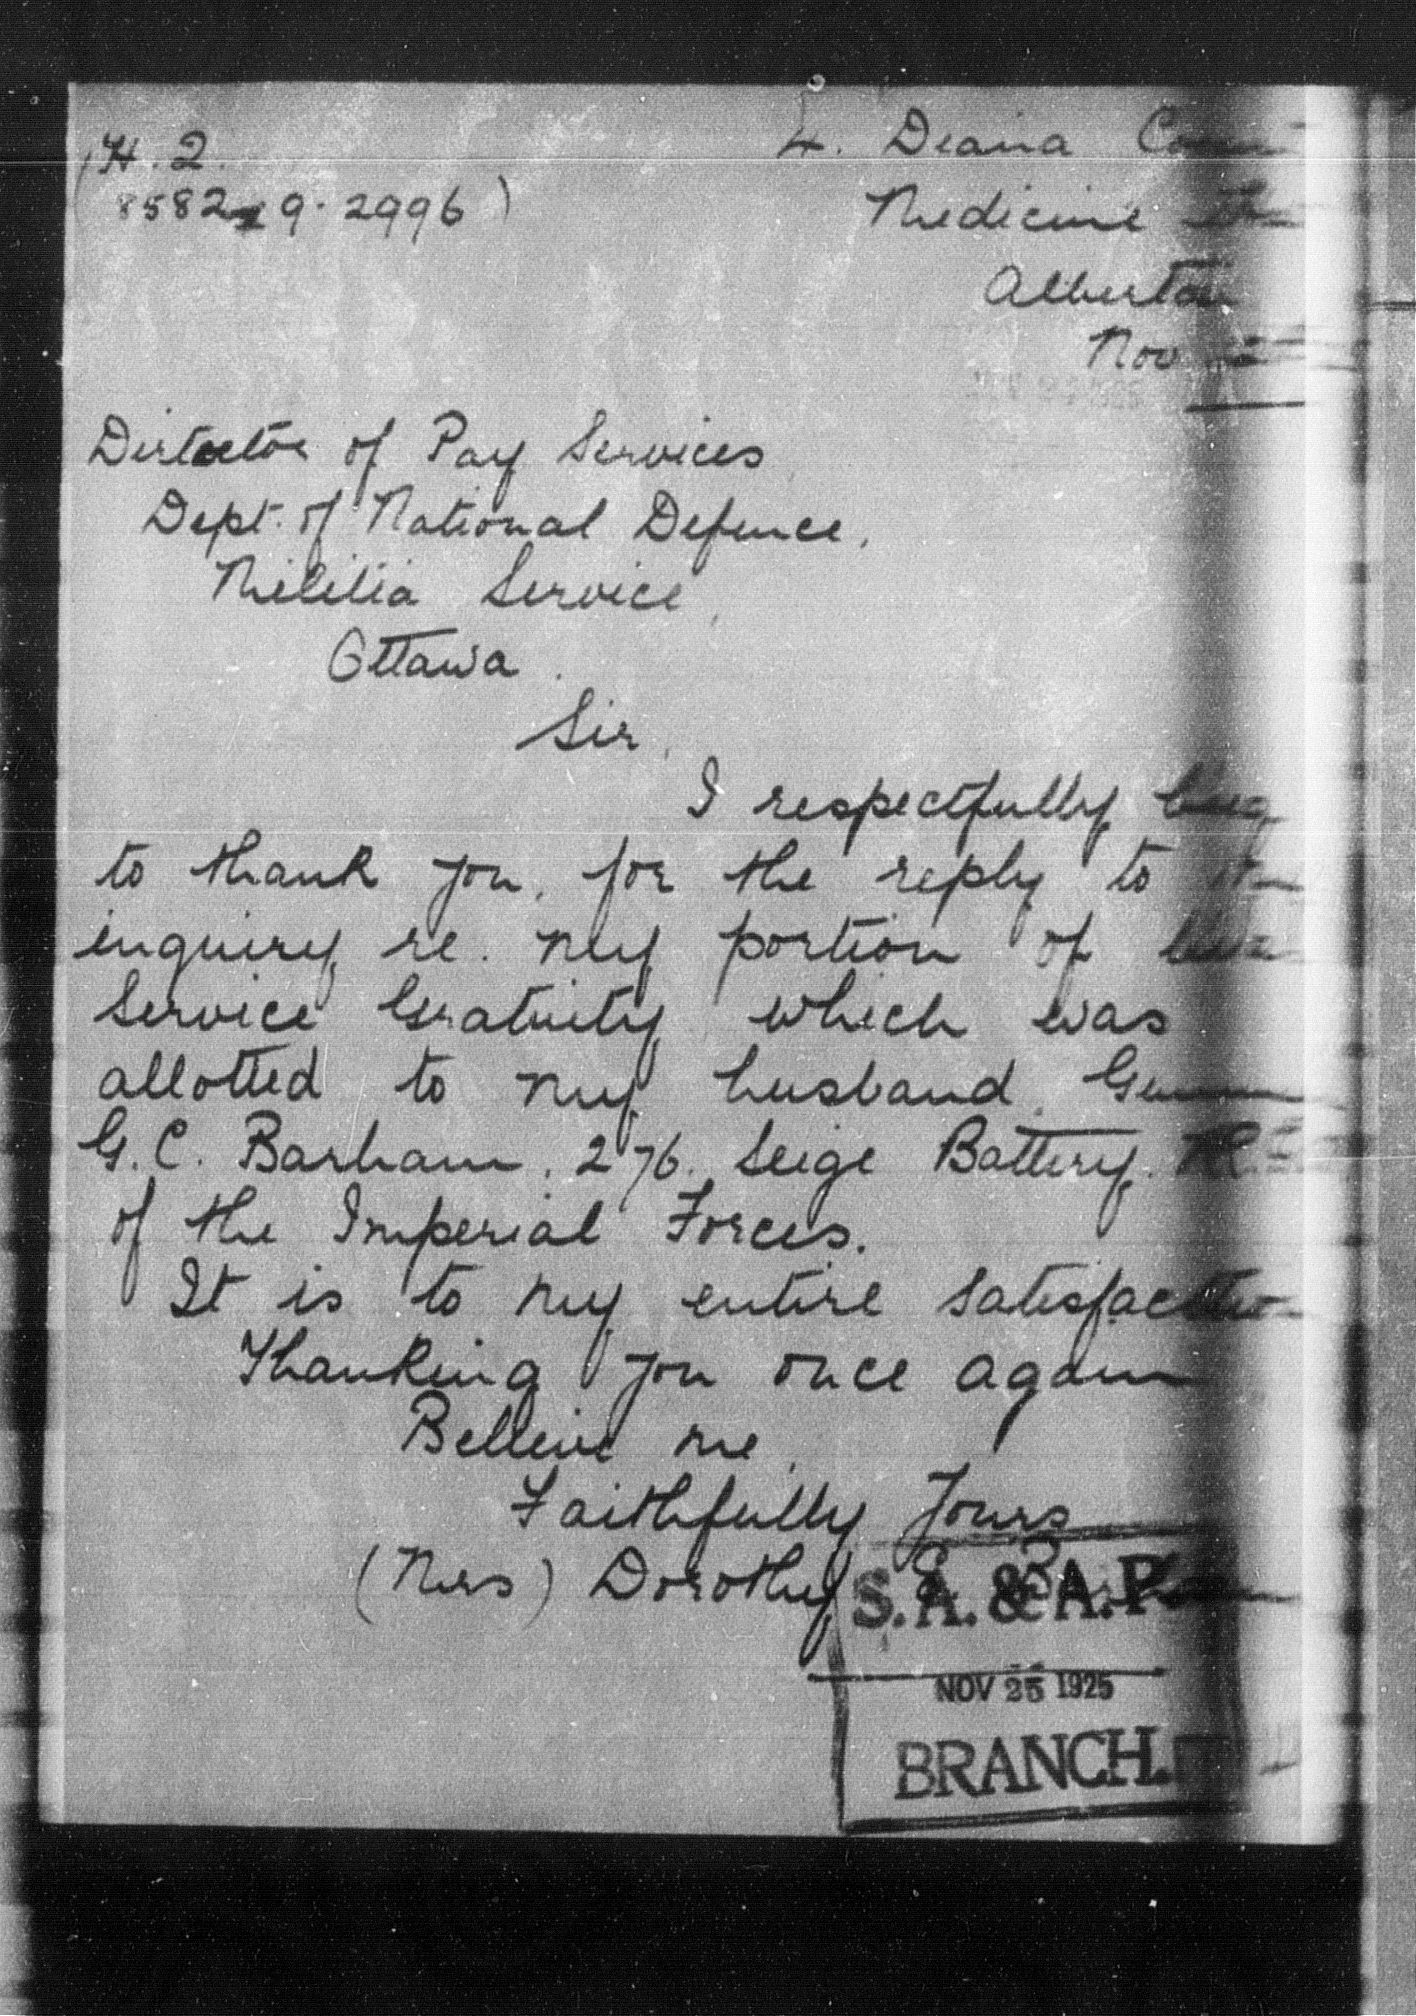 (H. 2.
8582-9-2996)
4. Deana
Medicine
Alberta
Nov
Director of Pay Services
Dept. of National Defence,
Militia Service,
Ottawa.
Sir,
I respectfully beg
to thank you, for the reply to
inquiry re. my portion of
Service Gratuity which was
allotted to my husband.
G. C. Barham. 276. Seige Battery.
of the Imperial Forces.
It is to my entire satisfaction
Thanking you once again
Believe me,
Faithfully Yours
(Mrs) Dorothy
S. A. & A. P.
NOV 25 1925
BRANCH.